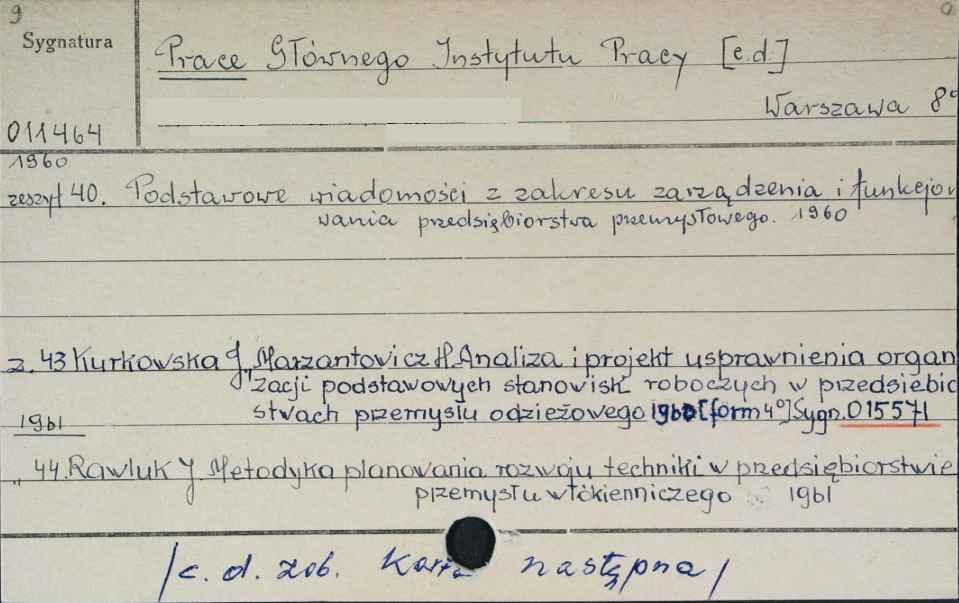 9
Sygnatura
Prace Głównego Instytutu Pracy [c.d.]
Warszawa 8°
011464
1960
zeszyt 40. Podstawowe wiadomości z zakresu zarządzenia i funkcjo
wania przedsiębiorstwa przemysłowego. 1960
z. 43 Kurkowska J., Marzantowicz H. Analiza i projekt usprawnienia organ
zacji podstawowych stanowisk roboczych w przedsiębio
stwach przemysłu odzieżowego 1960 [form 4°] Sygn. 015571
1961
" 44. Rawluk J. Metodyka planowania rozwoju techniki w przedsiębiorstwie
przemysłu włókienniczego 1961
/c. d. zob. karta następna/